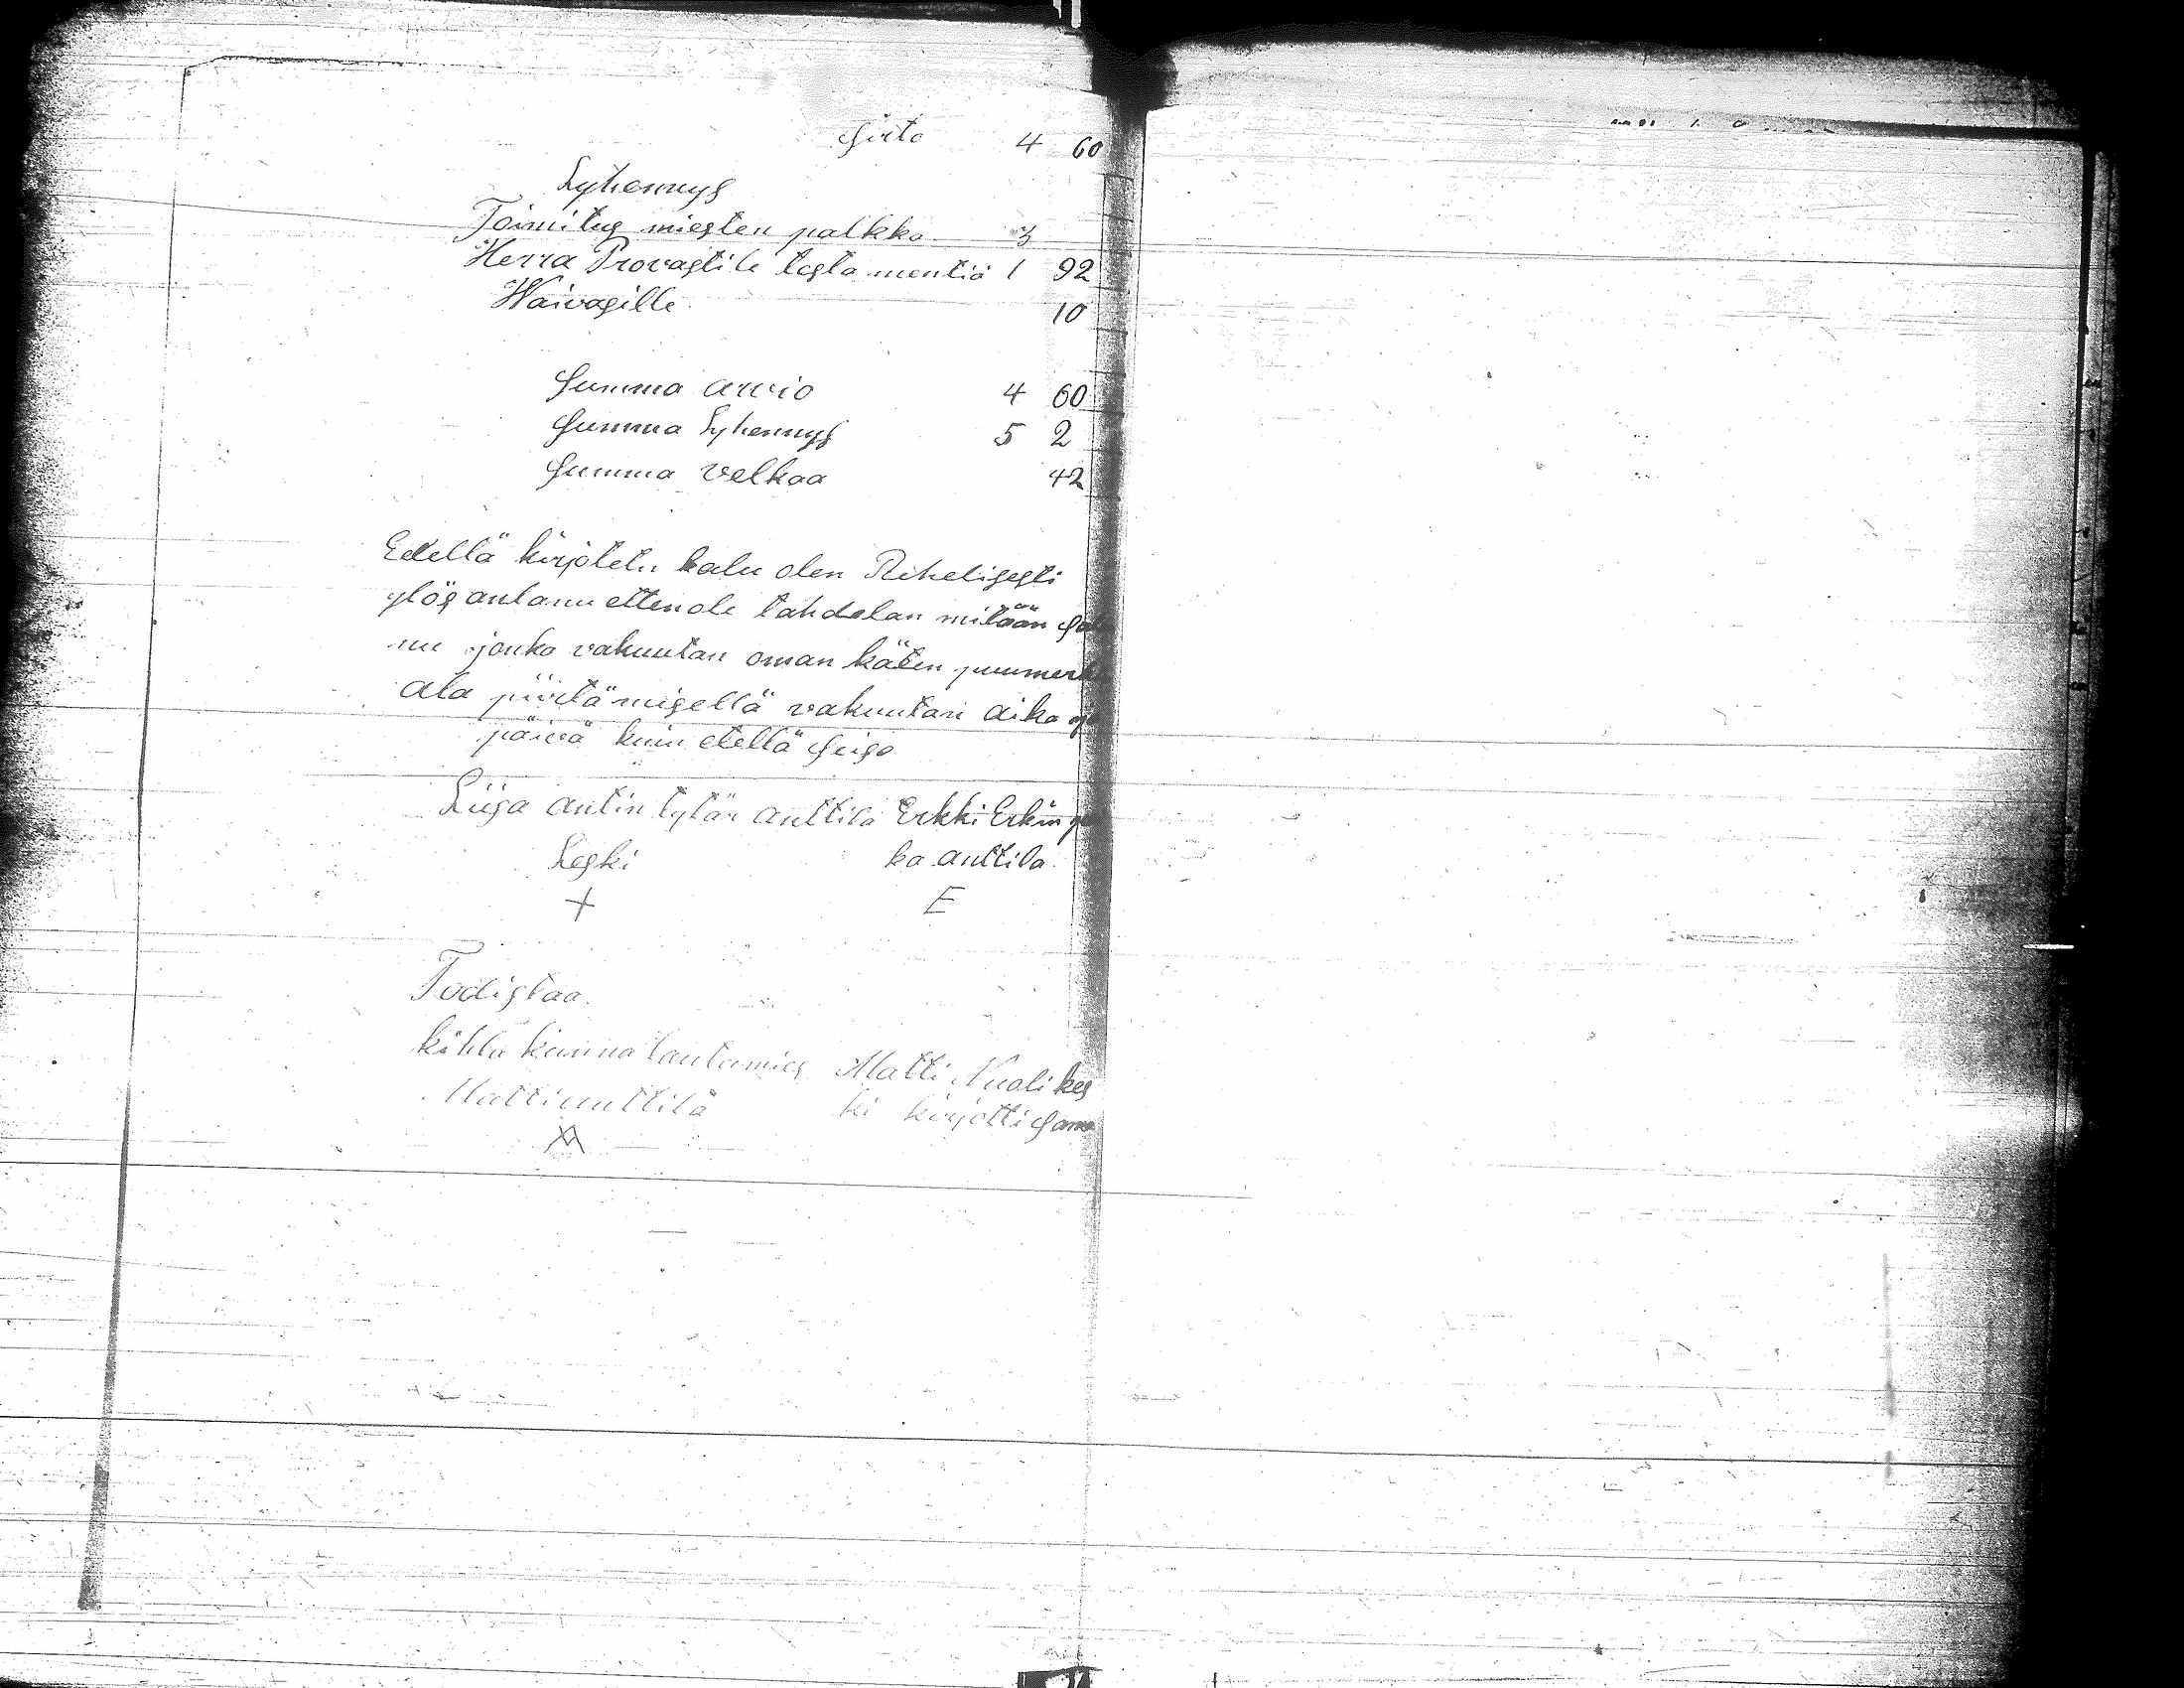 Sirto 4 60
Lyhennys
Toimitus miesten palkka 3
Herra Provastile testamentiä 1 92
Waivasille 10
Summa arvio 4 60
Summa Lyhennys 5 2
Summa velkaa 42
Edellä kirjotetu kalu olen Rehelisesti
ylös antanu etten ole tahdolan mitään
nu jonka vakuutan oman käten puumerk
ala piirtämisellä vakuutan aika
päivä kuin etellä seiso
Liisa antin tytär anttila Erkki Erkin
Leski ka anttila
+ E
Todistaa
kihlakunna lautamies Matti Nuolikos
Matti anttila ki kirjotti Sama